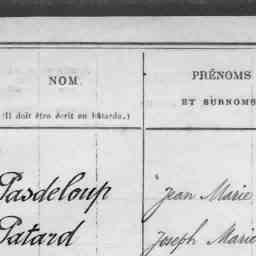 NOM.
(Il doit être écrit en bâtarde.)
PRÉNOMS
ET SURNOMS
Pasdeloup
Jean Marie
Patard
Joseph Marie